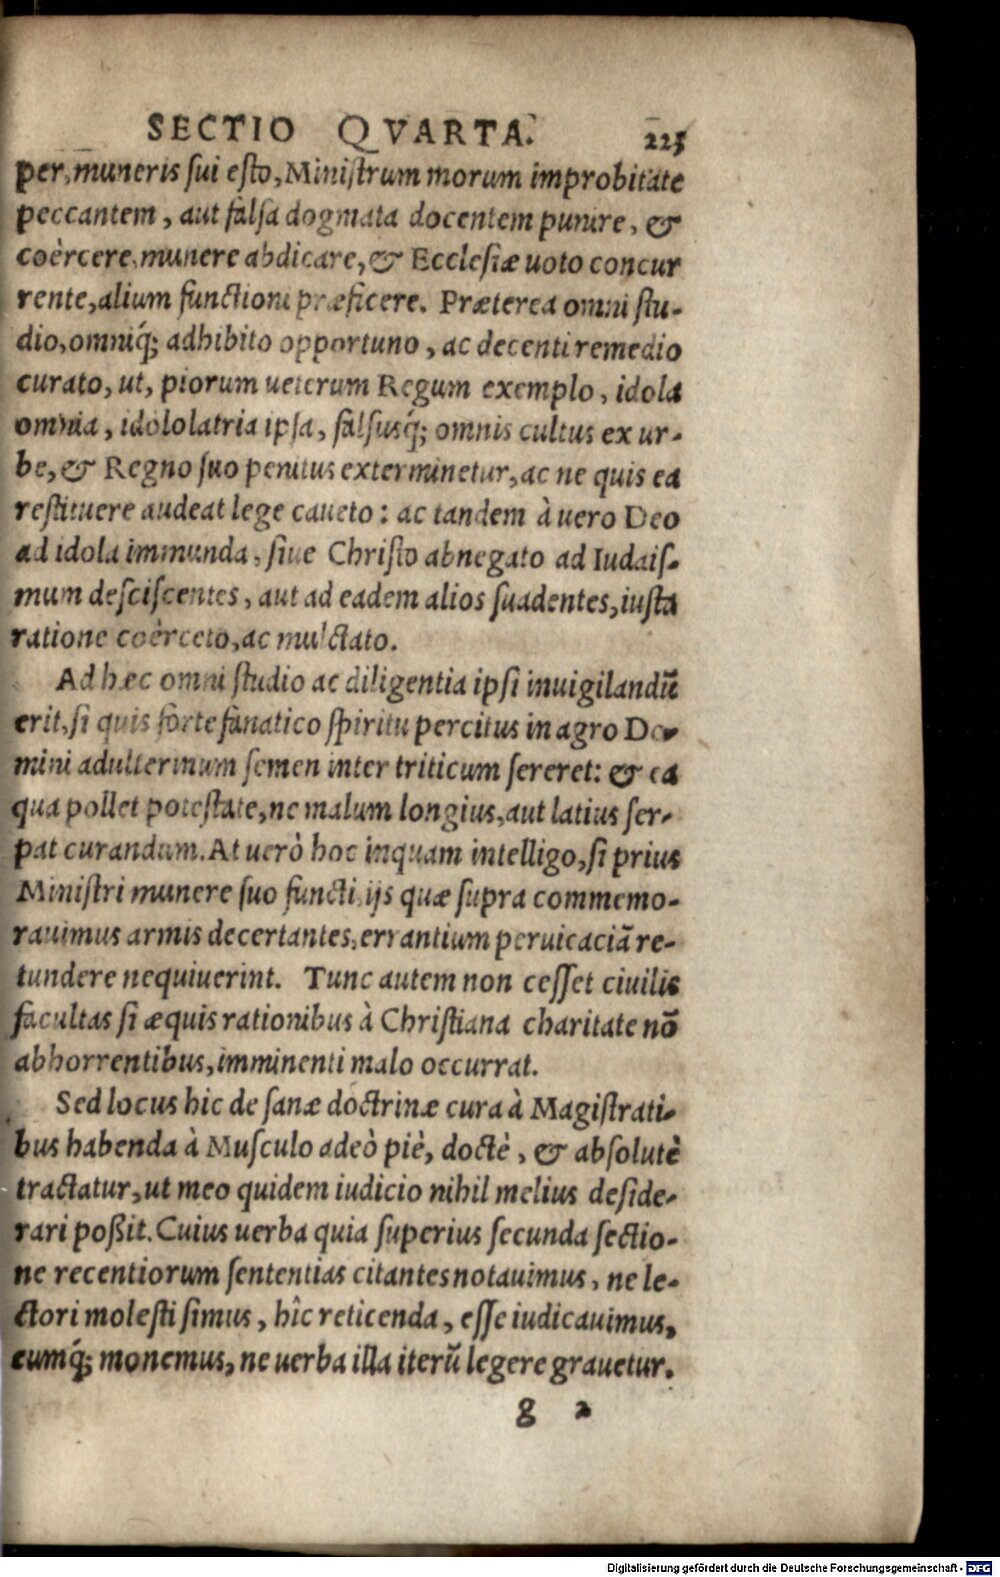 SECTIO QVARTA. 225
per, muneris sui esto, Ministrum morum improbitate
peccantem, aut falsa dogmata docentem punire, &
coërcere, munere abdicare, & Ecclesiæ uoto concur
rente, alium functioni præficere. Præterea omni stu-
dio, omniq́; adhibito opportuno, ac decenti remedio
curato, ut, piorum ueterum Regum exemplo, idola
omnia, idololatria ipsa, falsusq́; omnis cultus ex ur-
be, & Regno suo penitus exterminetur, ac ne quis ea
restituere audeat lege caueto: ac tandem à uero Deo
ad idola immunda, siue Christo abnegato ad Iudais-
mum desciscentes, aut ad eadem alios suadentes, iusta
ratione coërceto, ac mulctato.
Ad hæc omni studio ac diligentia ipsi inuigilandũ
erit, si quis forte fanatico spiritu percitus in agro Do-
mini adulterinum semen inter triticum sereret: & ea
qua pollet potestate, ne malum longius, aut latius ser-
pat curandum. At uerò hoc inquam intelligo, si prius
Ministri munere suo functi, ijs quæ supra commemo-
rauimus armis decertantes, errantium peruicaciã re-
tundere nequiuerint. Tunc autem non cesset ciuilis
facultas si æquis rationibus à Christiana charitate nõ
abhorrentibus, imminenti malo occurrat.
Sed locus hic de sanæ doctrinæ cura à Magistrati-
bus habenda à Musculo adeò piè, doctè, & absolutè
tractatur, ut meo quidem iudicio nihil melius deside-
rari poßit. Cuius uerba quia superius secunda sectio-
ne recentiorum sententias citantes notauimus, ne le-
ctori molesti simus, hîc reticenda, esse iudicauimus,
eumq́; monemus, ne uerba illa iterũ legere grauetur.
g 2
Digitalisierung gefördert durch die Deutsche Forschungsgemeinschaft - DFG